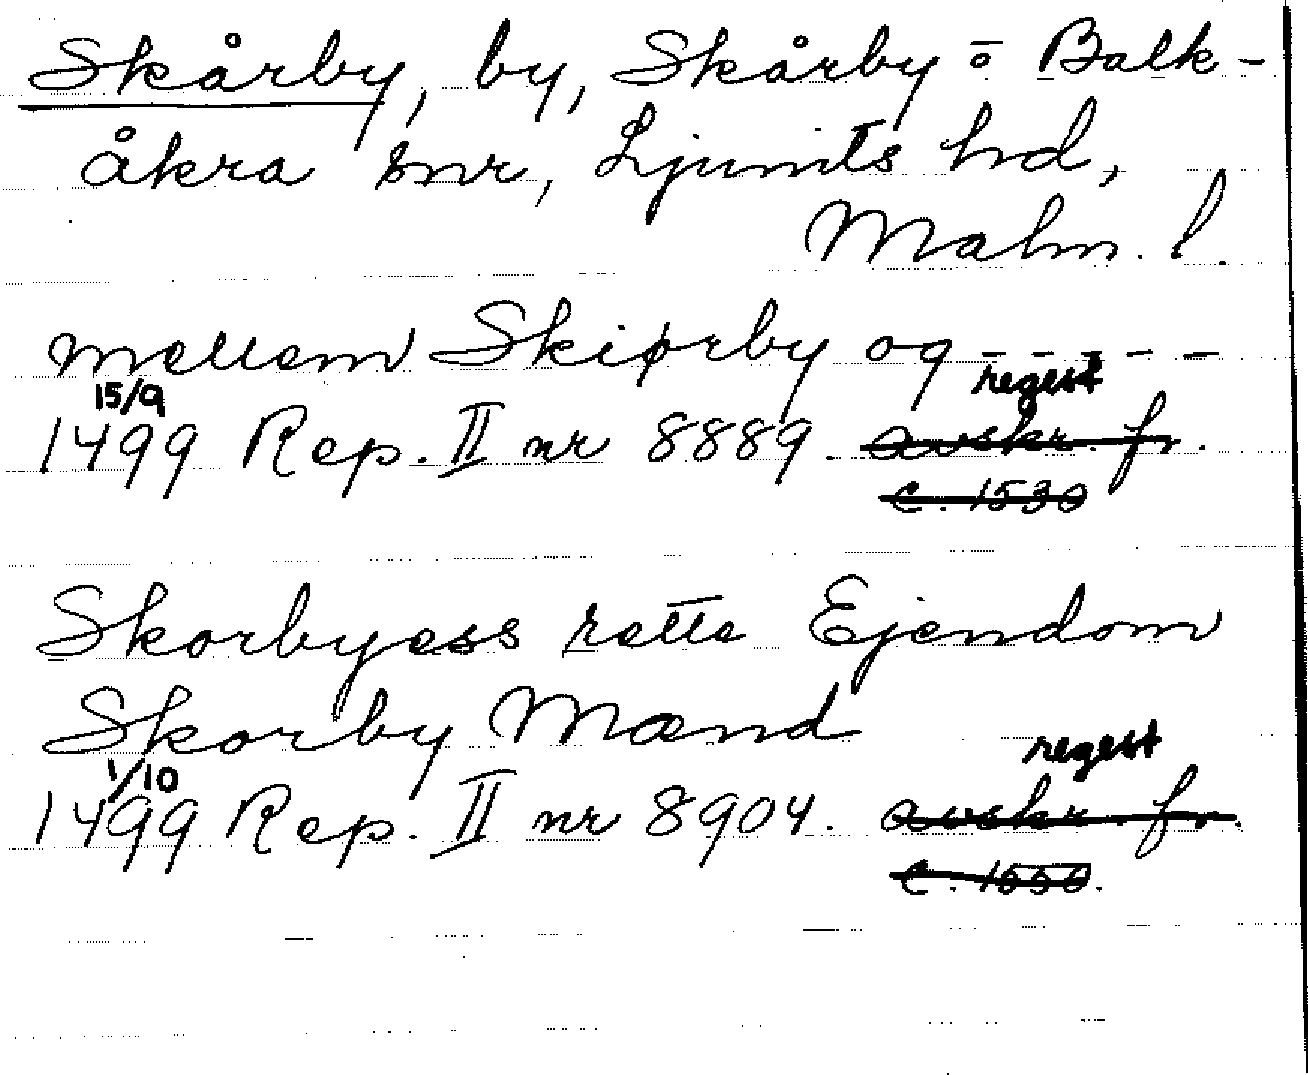 Skårby, by, Skårby o Balk-
åkra snr, Ljunits hd,
Malm. l.
mellem Skiørby og - - - - -
15/9 regest
1499 Rep. II nr 8889. avskr. fr.
c. 1530
Skorbyess rette Ejendom
Skorby Mænd
1/10 regest
1499 Rep. II nr 8904. avskr. fr.
c. 1550.